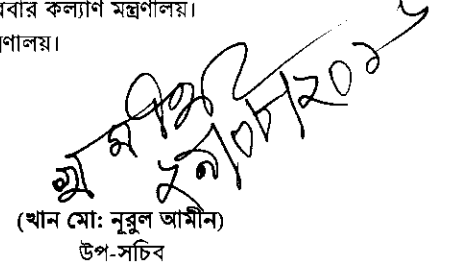 রবার কল্যাণ মন্ত্রণালয়।
ণালয়।
(খান মো: নূরুল আমীন)
উপ-সচিব